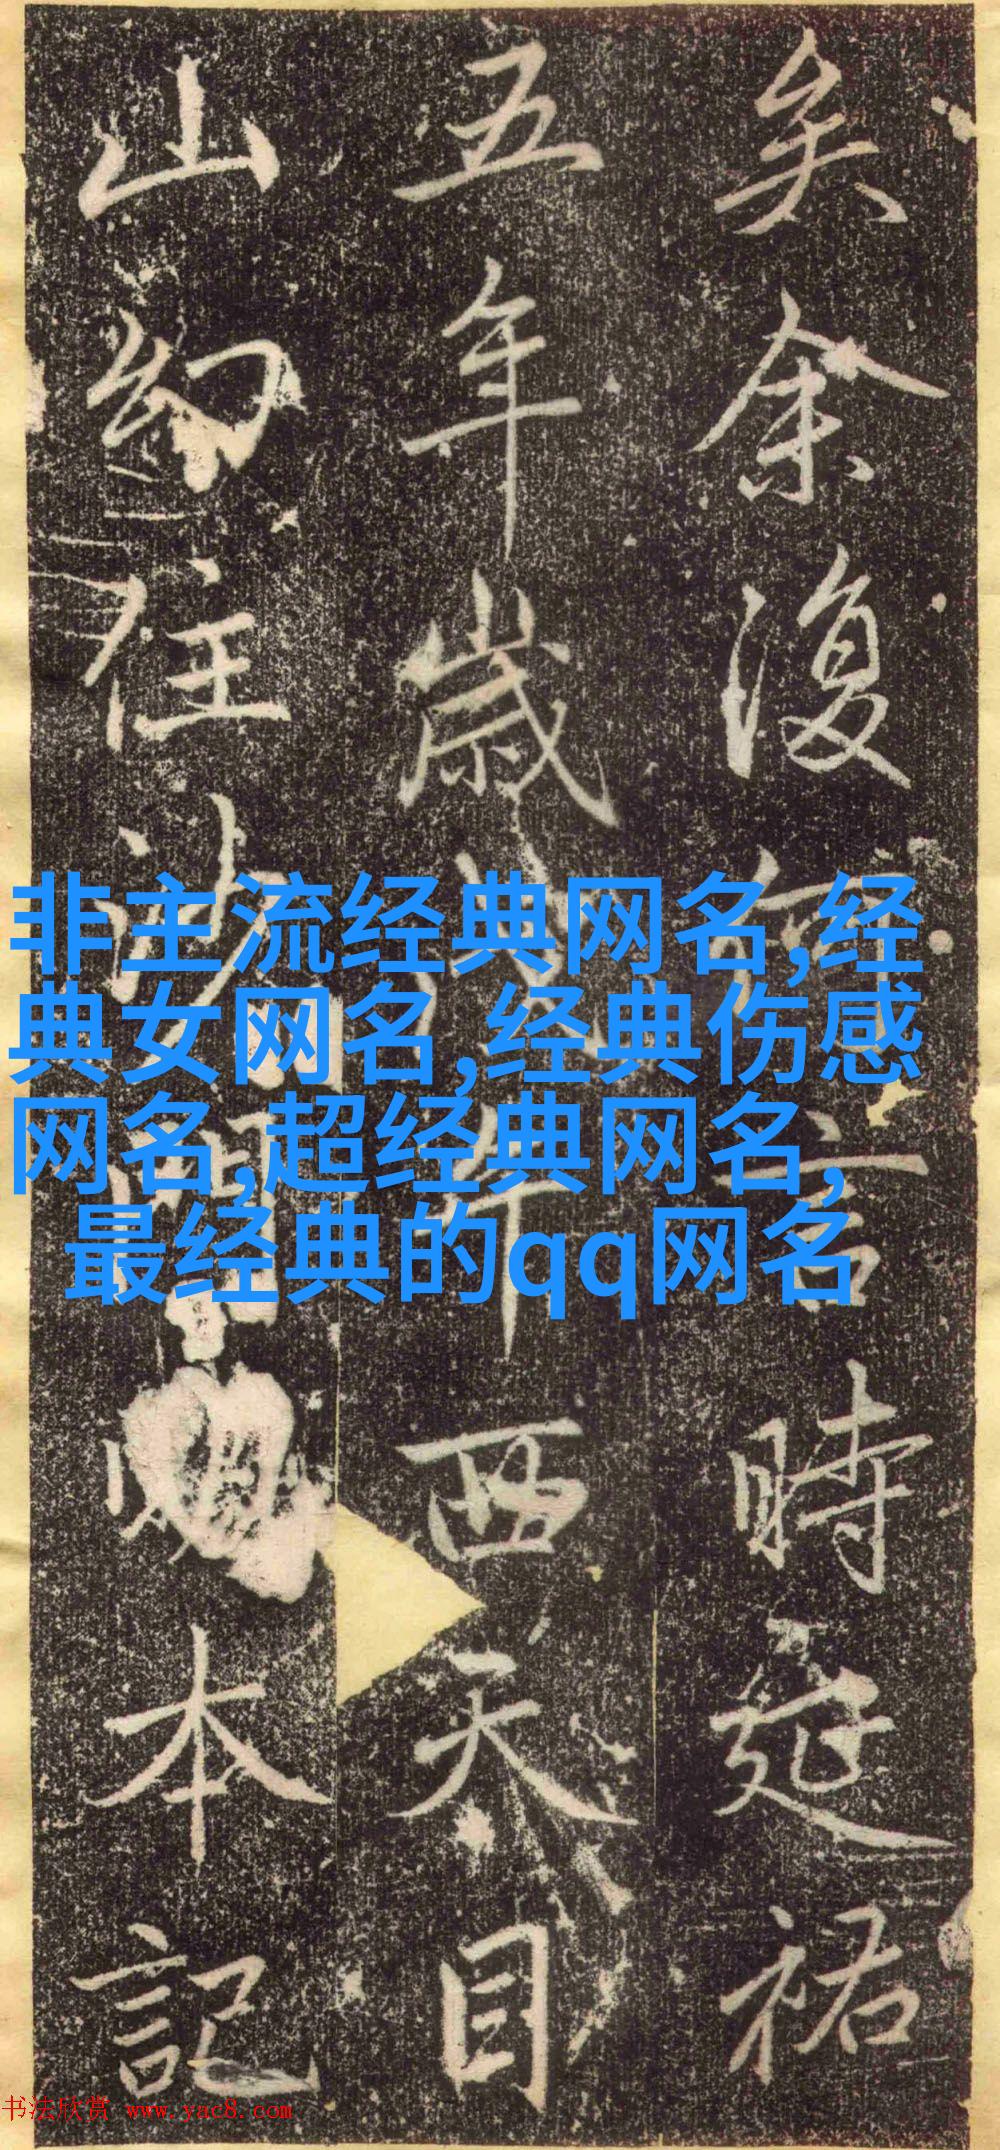 矣余復何言時延祐
五年歲戊午西天目
山幻住沙門本記
非主流经典网名,经
典女网名,经典伤感
网名,超经典网名,
最经典的qq网名
书法欣赏 www.yac8.com